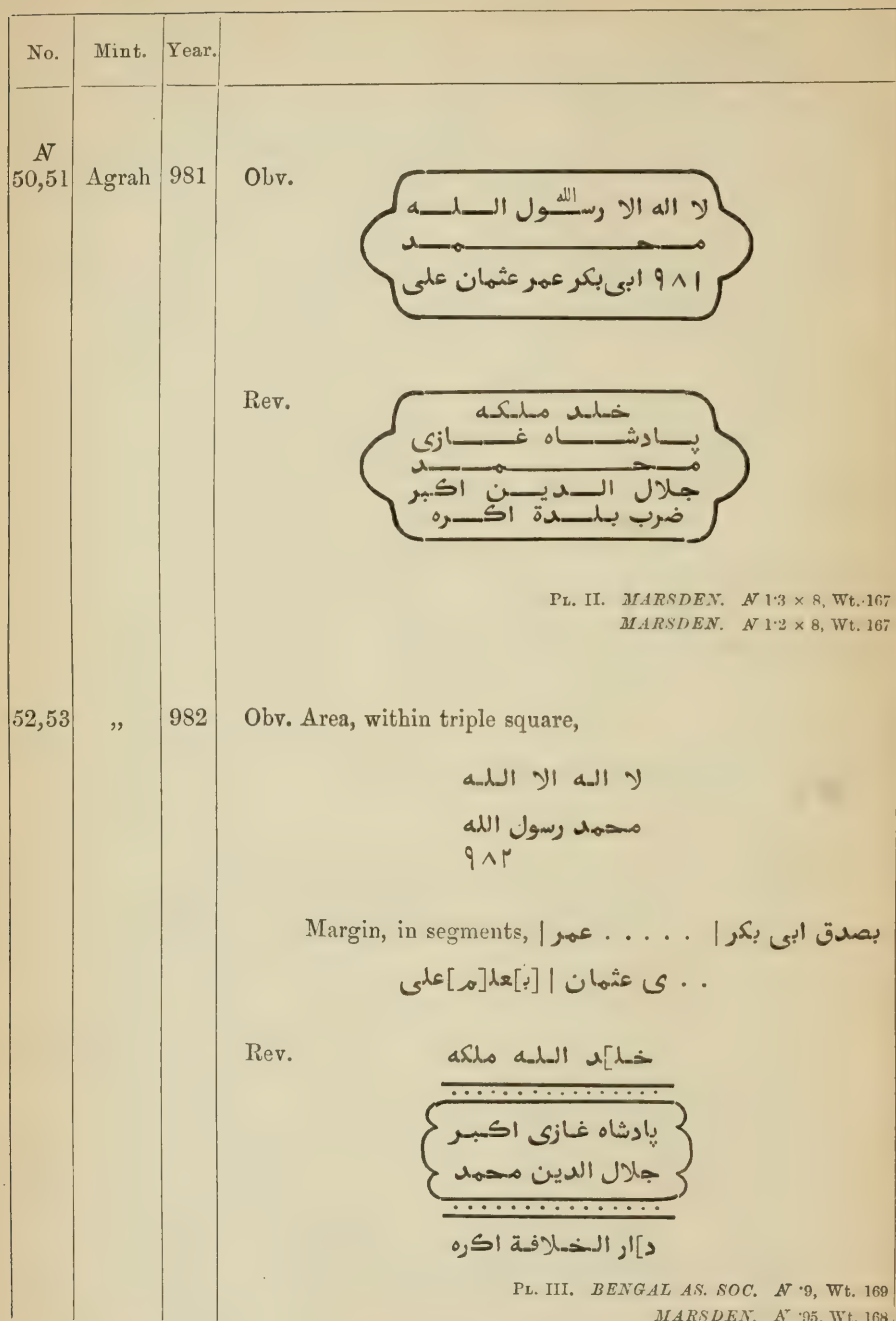 No. Mint. Year.
N
50,51 Agrah 981 Obv.
لا اله الا رسول الله الله
محمد
۹۸۱ ابی بکر عمر عثمان علی
Rev.
خلد ملکه
پادشاه غازی
محمد
جلال الدین اکبر
ضرب بلدة اکره
PL. II. MARSDEN. N 1·3 × 8, Wt. 167
MARSDEN. N 1·2 × 8, Wt. 167
52,53 ,, 982 Obv. Area, within triple square,
لا اله الا الله
محمد رسول الله
۹۸۲
Margin, in segments, بصدق ابی بکر | . . . . . عمر |
. . ی عثمان | [ب]عل[م]علی
Rev.
خل]د الله ملکه
پادشاه غازی اکبر
جلال الدین محمد
د]ار الخلافة اکره
PL. III. BENGAL AS. SOC. N ·9, Wt. 169
MARSDEN. N ·95, Wt. 168